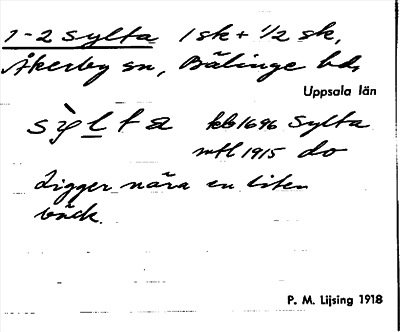 1-2 Sylta 1 sk + 1/2 sk,
Åkerby sn, Bälinge hd,
Uppsala län
sỳl̲ta kb 1696 Sylta
mtl 1915 do
Ligger nära en liten
bäck.
P. M. Lijsing 1918